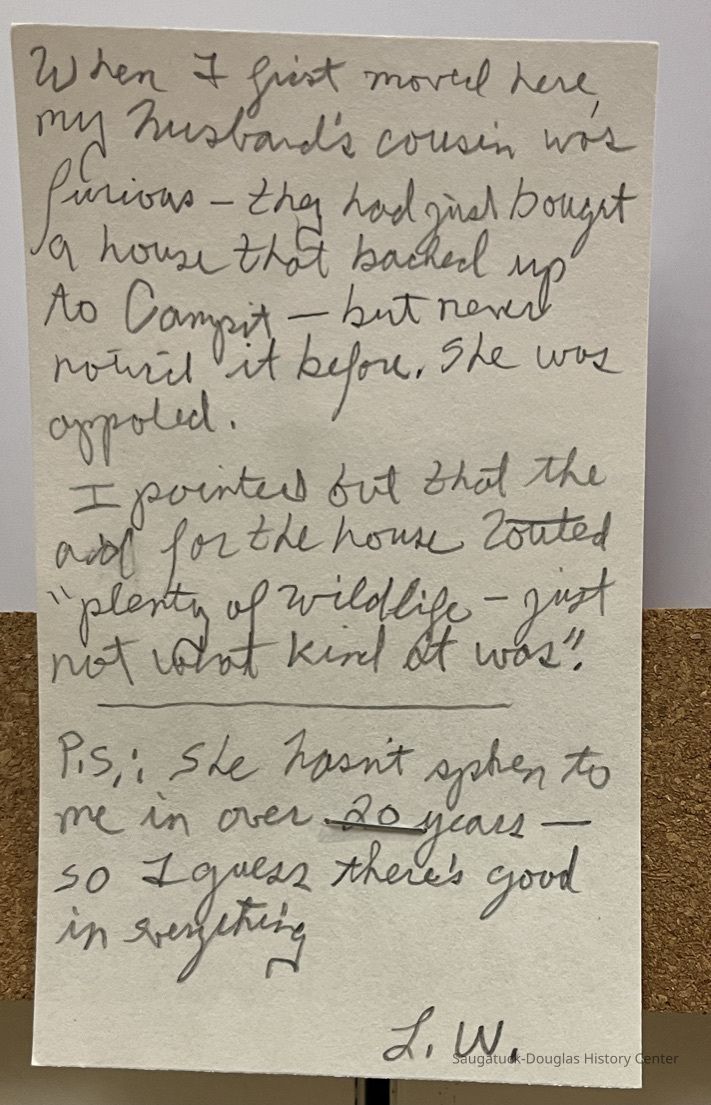 When I first moved here,
my husband's cousin was
furious – they had just bought
a house that backed up
to Campit – but never
noticed it before. She was
appoled.
I pointed out that the
add for the house touted
"plenty of wildlife – just
not what kind it was".
P.S.: She hasn't spoken to
me in over 20 years –
so I guess there's good
in everything
L. W.
Saugatuck-Douglas History Center